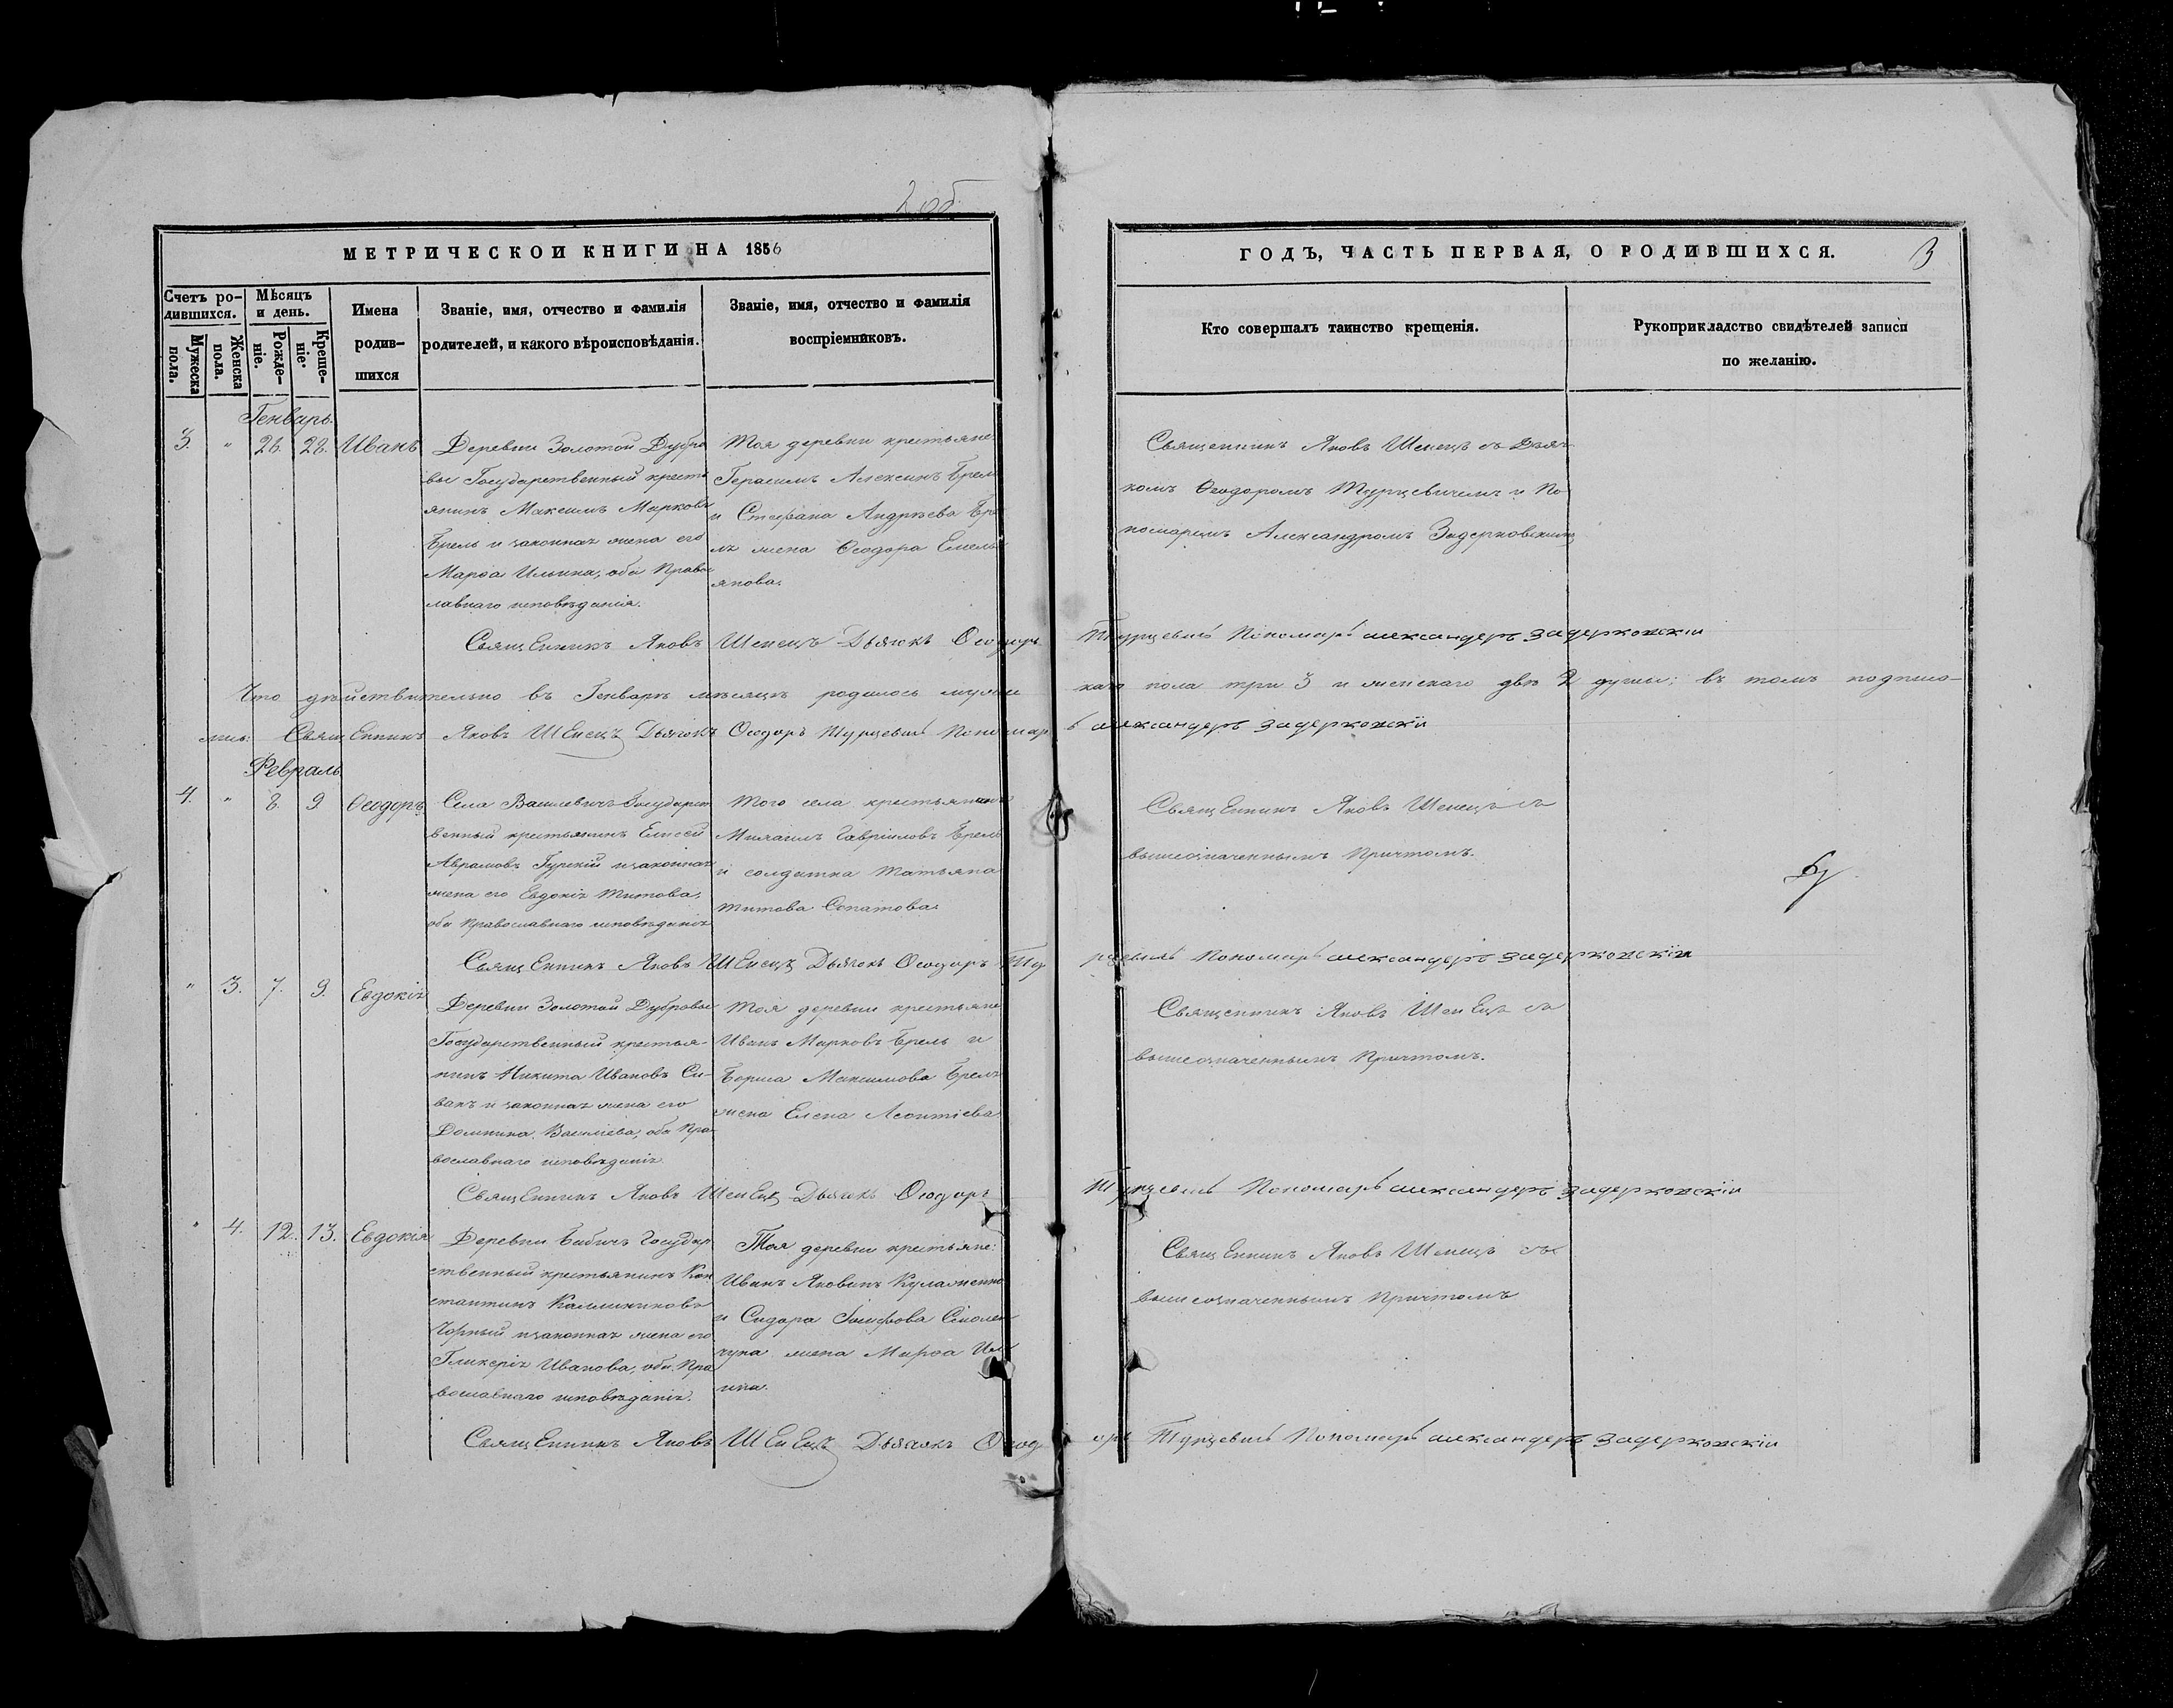 2 об
МЕТРИЧЕСКОЙ КНИГИ НА 1856
ГОДЪ, ЧАСТЬ ПЕРВАЯ, О РОДИВШИХСЯ.
3
Счетъ ро-
дившихся.
Мужеска пола.
Женска пола.
Мѣсяцъ
и день.
Рожде-
ніе.
Креще-
ніе.
Имена
родив-
шихся
Званіе, имя, отчество и фамилія
родителей, и какого вѣроисповѣданія.
Званіе, имя, отчество и фамилія
воспріемниковъ.
Кто совершалъ таинство крещенія.
Рукоприкладство свидѣтелей записи
по желанію.
Генварь.
3. " 26. 28. Иванъ
Деревни Золотой Дубро
вы Государственный кресть
янинъ Максимъ Марковъ
Брель и законная жена его
Марѳа Ильина, оба Право
славнаго исповѣданія.
Тоя деревни крестьяне:
Герасимъ Алексинъ Брель
и Стефана Андреева Бре
ля жена Ѳеодора Емель
янова.
Священникъ Яковъ Шенецъ съ Дьяч
комъ Ѳеодоромъ Турцевичемъ и По
номаремъ Александромъ Задерковскимъ
Священникъ Яковъ Шенецъ Дьячокъ Ѳеодоръ Турцевичъ Пономарь Александеръ Задерковскій
Что дѣйствительно въ Генварѣ мѣсяцѣ родилось мужес каго пола три 3 и женскаго двѣ 2 души; въ томъ подписа-
лись: Священникъ Яковъ Шенецъ Дьячокъ Ѳеодоръ Турцевичъ Пономарь Александеръ Задерковскій
Февраль
4. " 8. 9. Ѳеодоръ
Села Василевичъ Государст
венный крестьянинъ Елисей
Аврамовъ Гурскій и законная
жена его Евдокія Титова,
оба Православнаго исповѣданія
Того села крестьянинъ
Михаилъ Гавріиловъ Брель
и солдатка Татьяна
Титова Сопатова.
Священникъ Яковъ Шенецъ съ
вышеозначеннымъ Причтомъ.
Священникъ Яковъ Шенецъ Дьячокъ Ѳеодоръ Турцевичъ Пономарь Александеръ Задерковскій
" 3. 7. 9. Евдокія
Деревни Золотой Дубровы
Государственный крестья-
нинъ Никита Ивановъ Си-
вакъ и законная жена его
Домникия Василіева, оба Пра-
вославнаго исповѣданія
Тоя деревни крестьяне
Иванъ Марковъ Брель и
Бориса Максимова Бреля
жена Елена Леонтіева
Священникъ Яковъ Шенецъ съ
вышеозначеннымъ Причтомъ.
Священникъ Яковъ Шенецъ Дьячокъ Ѳеодоръ Турцевичъ Пономарь Александеръ Задерковскій
" 4. 12. 13. Евдокія
Деревни Бабичъ Государ
ственный крестьянинъ Кон
стантинъ Каллиниковъ
Чорный и законная жена его
Гликерія Иванова, оба Пра
вославнаго исповѣданія.
Тоя деревни крестьяне:
Иванъ Яковинъ Кулаженко
и Сидора Іосифова Смолен
чука жена Марѳа Иль
ина.
Священникъ Яковъ Шенецъ съ
вышеозначеннымъ Причтомъ
Священникъ Яковъ Шенецъ Дьячокъ Ѳеодоръ Турцевичъ Пономарь Александеръ Задерковскій